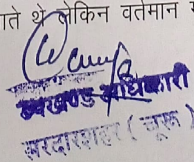 ाते थे लेकिन वर्तमान
उपखण्ड अधिकारी
सरदारशहर ( चूरू )